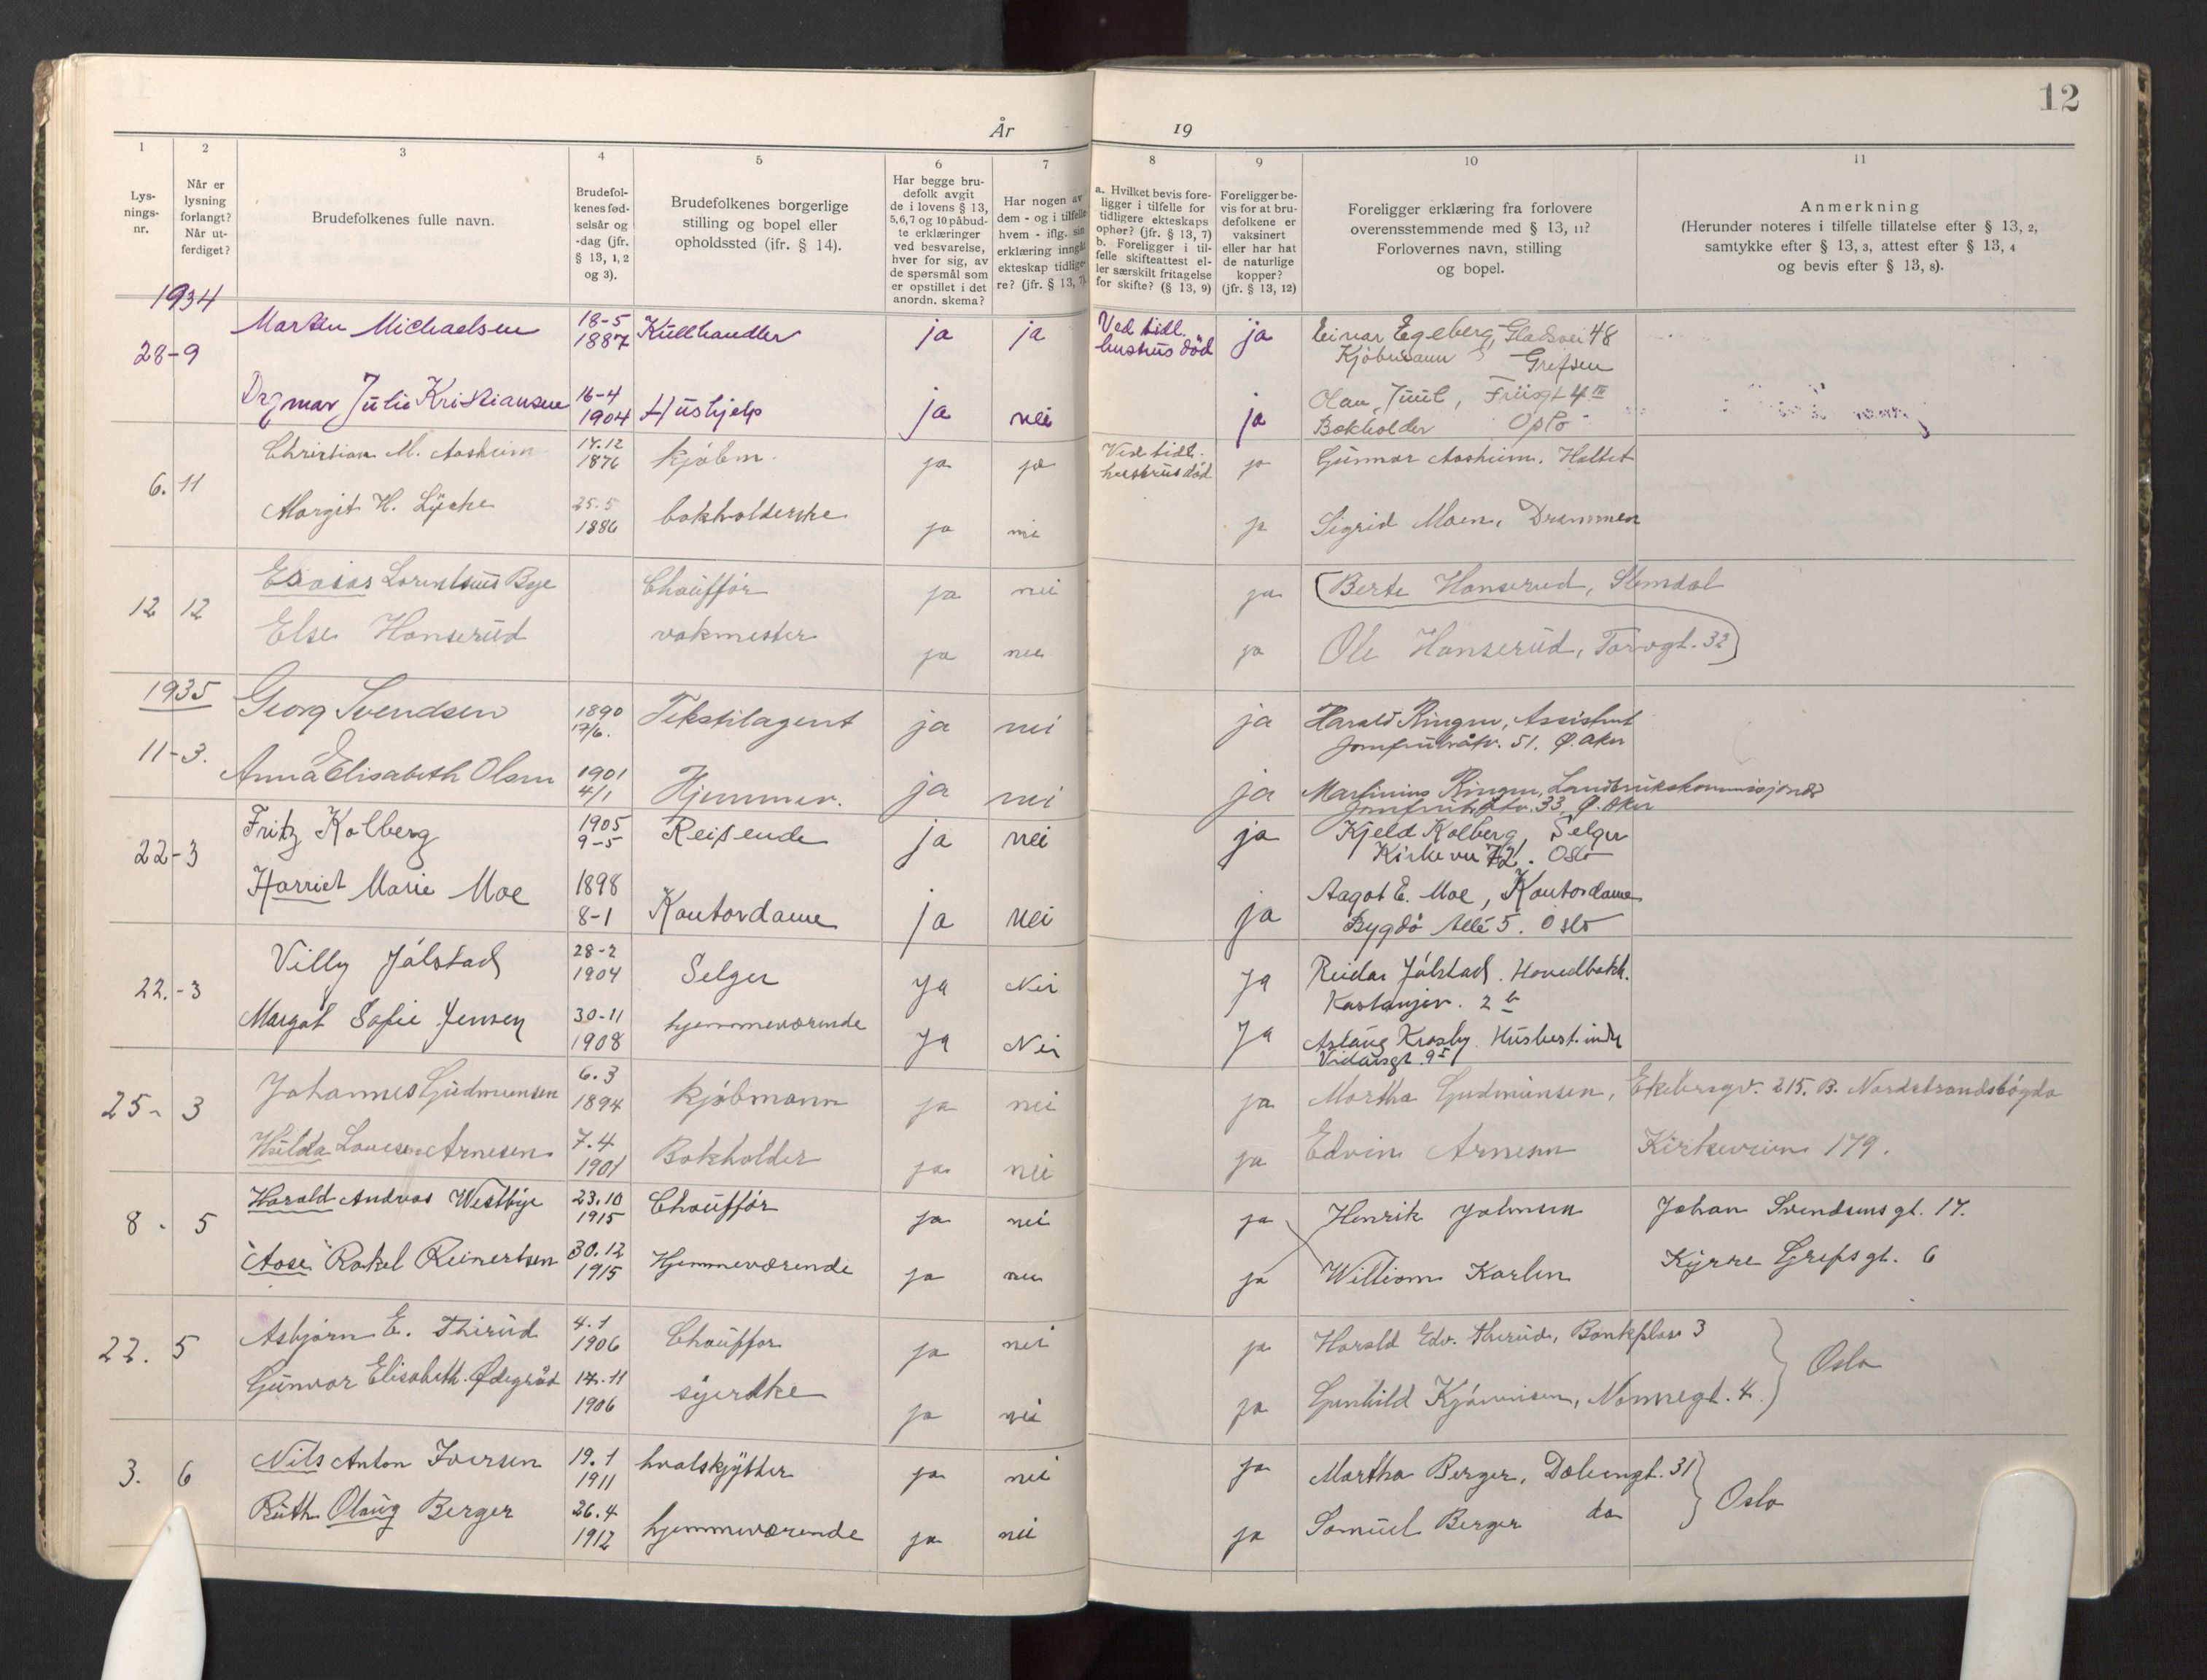 12
År 19
1 2 3 4 5 6 7 8 9 10 11
Lys-
nings-
nr.
Når er
lysning
forlangt?
Når ut-
ferdiget?
Brudefolkenes fulle navn.
Brudefol-
kenes fød-
selsår og
-dag (jfr.
§ 13, 1, 2
og 3).
Brudefolkenes borgerlige
stilling og bopel eller
opholdssted (ifr. § 14).
Har begge bru-
defolk avgit
de i lovens § 13,
5,6,7 og 10 påbud-
te erklæringer
ved besvarelse,
hver for sig, av
de spørsmål som
er opstillet i det
anordn. skema?
Har nogen av
dem - og i tilfelle
hvem - iflg. sin
erklæring inngått
ekteskap tidlige-
re? (jfr. § 13, 7).
a. Hvilket bevis fore-
ligger i tilfelle for
tidligere ekteskaps
ophør? (jfr. § 13, 7)
b. Foreligger i til-
felle skifteattest el-
ler særskilt fritagelse
for skifte? (§ 13, 9)
Foreligger be-
vis for at bru-
defolkene er
vaksinert
eller har hat
de naturlige
kopper?
(jfr. § 13, 12)
Foreligger erklæring fra forlovere
overensstemmende med § 13, 11?
Forlovernes navn, stilling
og bopel.
Anmerkning
(Herunder noteres i tilfelle tillatelse efter § 13, 2,
samtykke efter § 13, 3, attest efter § 13, 4
og bevis efter § 13, 8).
1934
28-9
Michaelsen 18-5 1887 Kullhandler ja ja Ved tidl. hustrus død ja Einar Egeberg, Gladsvei 48
Kjøbmann Grefsen
Dagmar Julie Kristiansen 16-4 1904 Hushjelp ja nei ja Olav Juul, Friisgt 4 III
Bokholder Oslo
6. 11
Christian M. Aasheim 1876 kjøbm. ja ja Ved tidl. hustrus død ja Gunnar Aasheim, Holtet
Margit H. Lycke 25.5 1886 bokholderske ja nei ja Sigrid Moen, Drammen
12 12
Esaias Lorentsius Bye Chauffør ja nei ja (Berte Hanserud, Slemdal
Else Hanserud vakmester ja nei ja Ole Hanserud, Torvgt. 32)
1935
11-3.
Georg Svendsen 1890 17/6. Tekstilagent ja nei ja Harald Ringen, Assistent
Jomfrubråtv. 51. Ø. Aker
Anna Elisabeth Olsen 1901 4/1 Hjemmev. ja nei ja Martinius Ringen,
Jomfrubråtv. 33 Ø. Aker
22-3
Fritz Kolberg 1905 9-5 Reisende ja nei ja Kjeld Kolberg, Selger
Kirkevei 72. Oslo
Harriet Marie Moe 1898 8-1 Kontordame ja nei ja Aagot E. Moe, Kontordame
Bygdø Allé 5. Oslo
22.-3
Villy Jålstad 28-2 1904 Selger Ja Nei Ja Reidar Jålstad. Hovedbokh.
Kastanjev. 2 b
Margot Sofie Jensen 30-11 1908 hjemmeværende Ja Nei Ja Aslaug Krosby. Husbest.inde
Vidarsgt. 9 I
25- 3
Johannes Gudmunsen 6.3 1894 kjøbmann ja nei ja Martha Gudmunsen, Ekebergv. 215. B. Nordstrandshøgda
Hulda Arnesen 7.4 1901 Bokholder ja nei ja Edvin Arnesen Kirkeveien 179.
8 - 5
Harald Andreas Westbye 23.10 1915 Chauffør ja nei ja Henrik Johnsen Johan Svendsensgt. 17.
"Aase" Rakel Reinertsen 30.12 1915 Hjemmeværende ja nei ja William Karlsen Kyrre Grepsgt. 6
22. 5
Asbjørn E. Thirud 4.1 1906 Chauffør ja nei ja Harald Edv. Therud, Bankplass 3
Gunvor Elisabeth Ødegrud 17.11 1906 syerske ja nei ja Gunhild, Nannegt. 4 } Oslo
3. 6
Nils Anton Iversen 19.1 1911 hvalskytter ja nei ja Martha Berger, Dælengt. 31
Ruth Olaug Berger 26.4 1912 hjemmeværende ja nei ja Samuel Berger do } Oslo